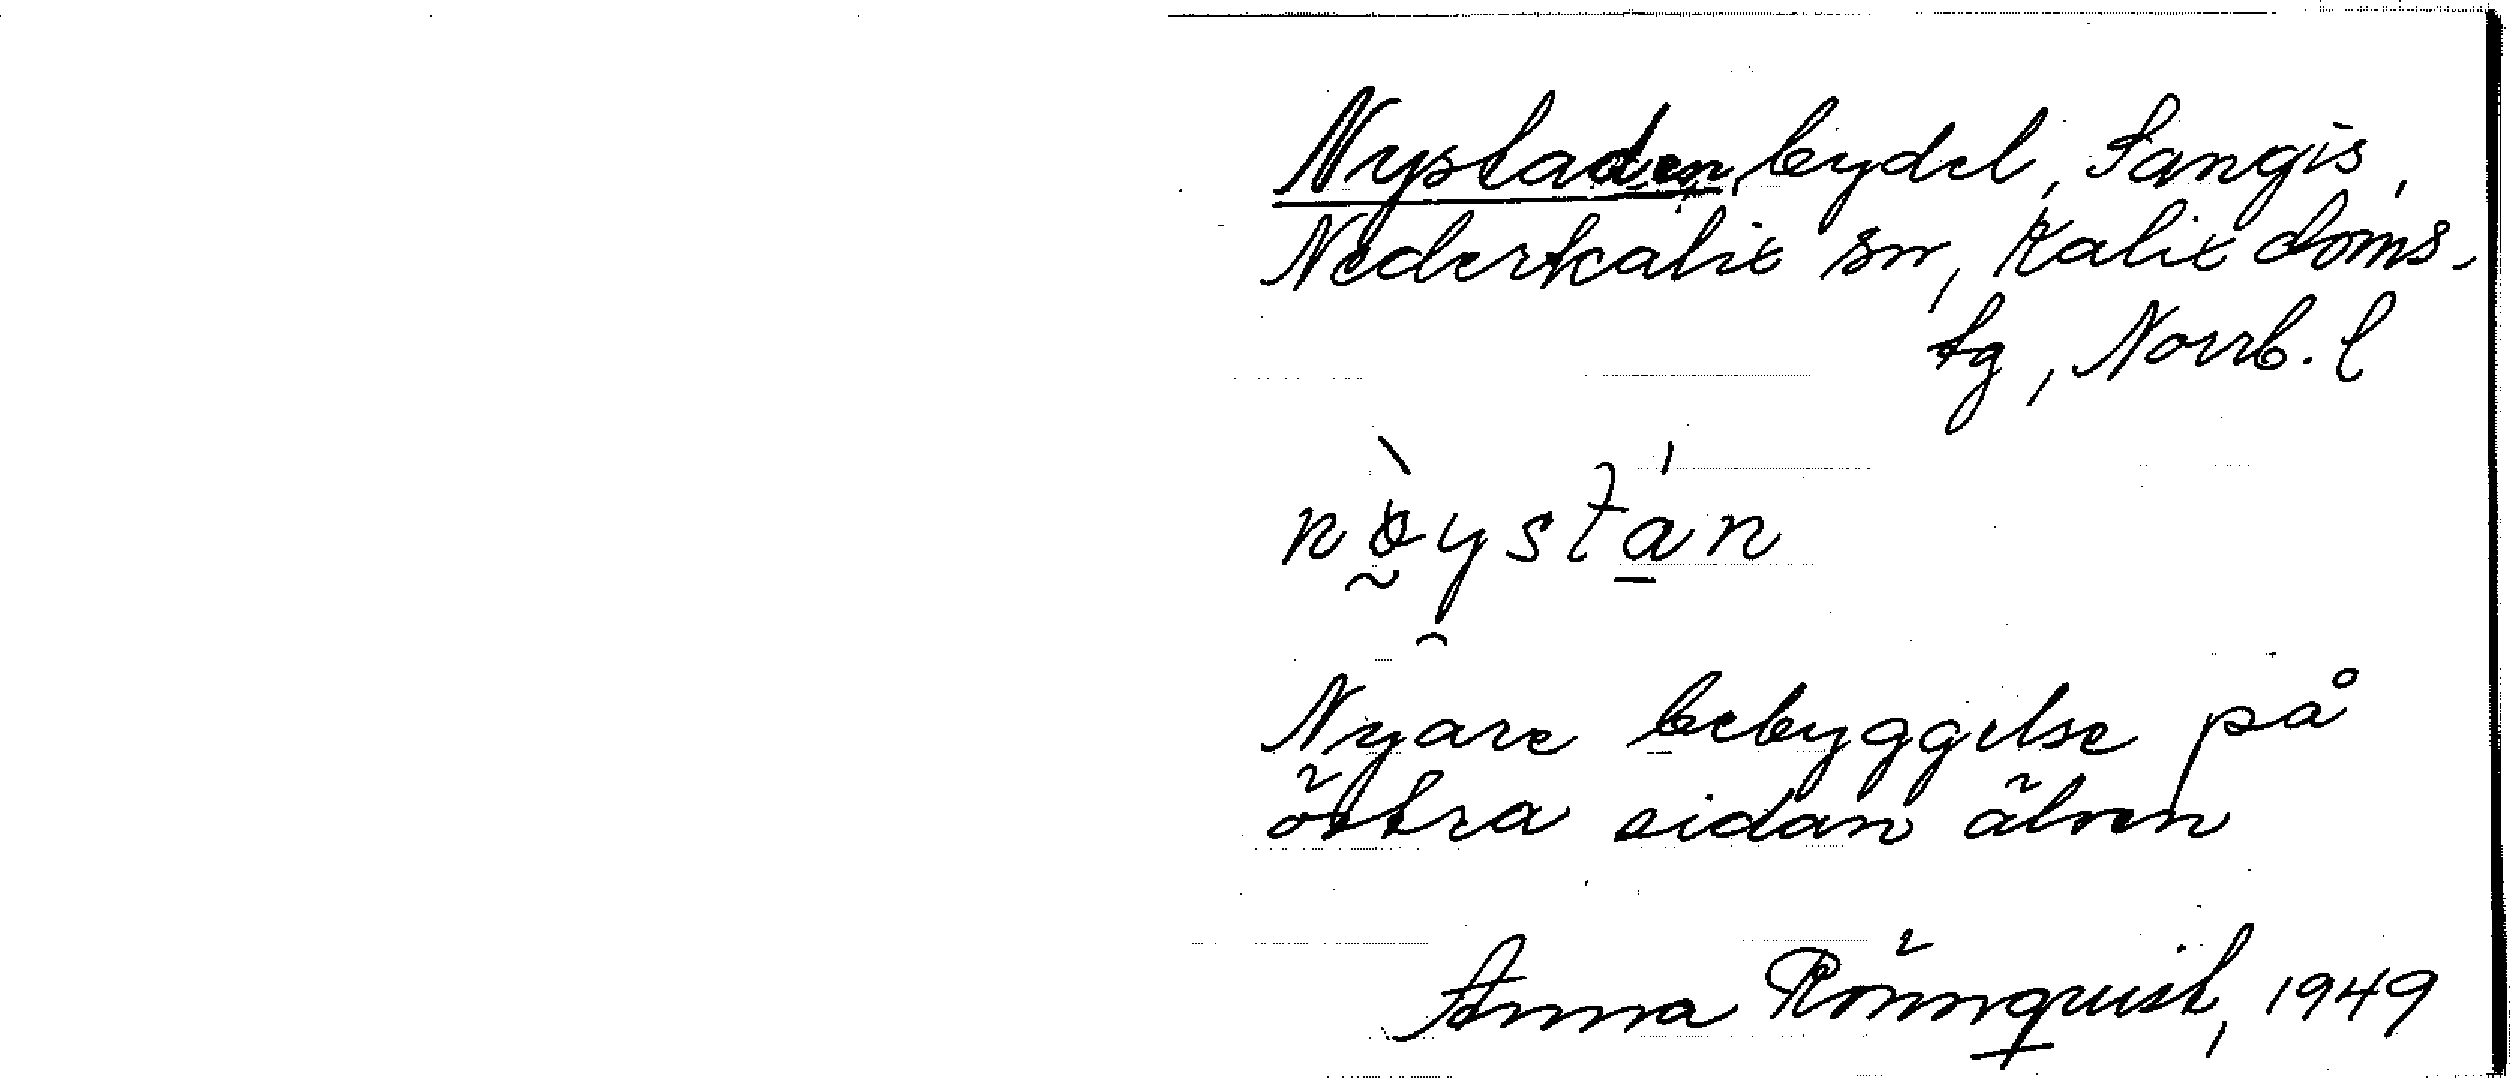 Nystaden, bydel, Sangis,
Nederkalix sn, Kalix doms-
tg, Norrb. l
nø̀ystán
Nyare bebyggelse på
östra sidan älven
Anna Rönnqvist, 1949